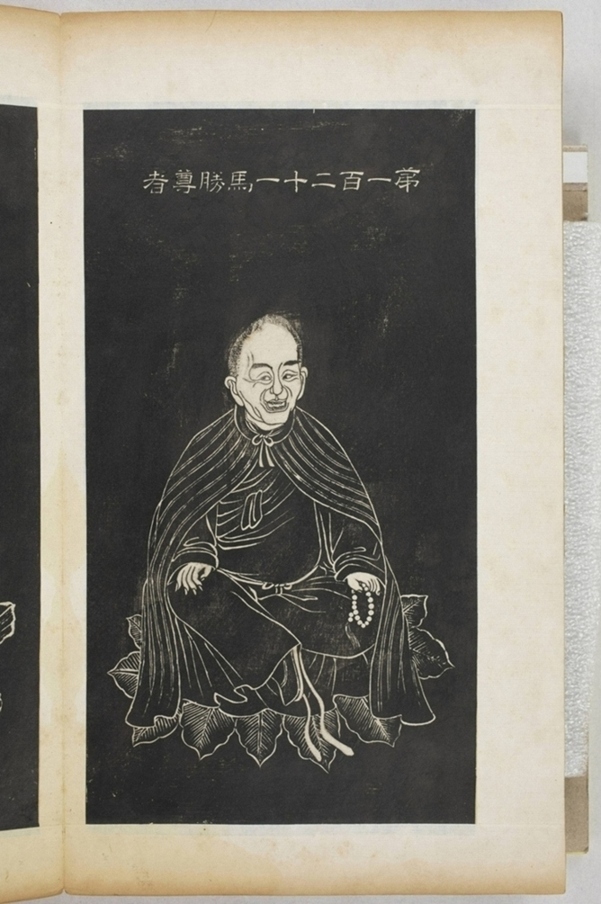 第一百二十一馬勝尊者